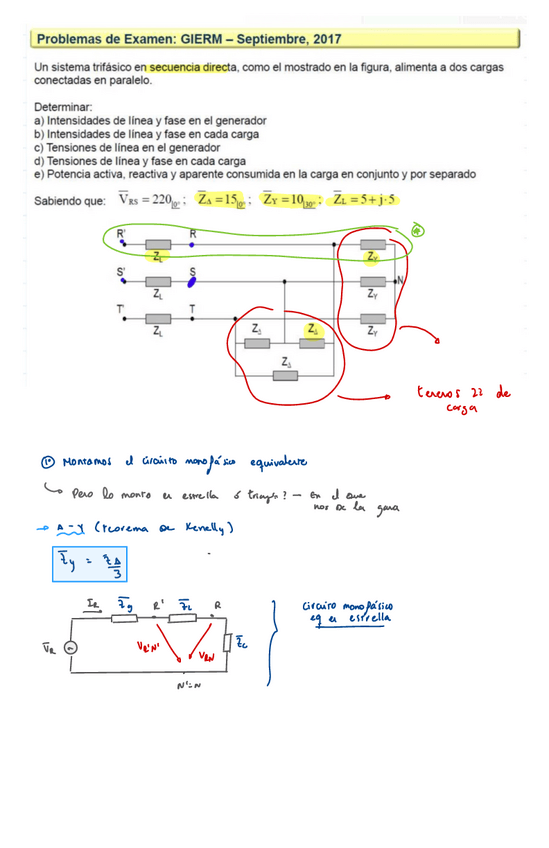 Problemas de Examen: GIERM – Septiembre, 2017
Un sistema trifásico en secuencia directa, como el mostrado en la figura, alimenta a dos cargas
conectadas en paralelo.
Determinar:
a) Intensidades de línea y fase en el generador
b) Intensidades de línea y fase en cada carga
c) Tensiones de línea en el generador
d) Tensiones de línea y fase en cada carga
e) Potencia activa, reactiva y aparente consumida en la carga en conjunto y por separado
Sabiendo que: V̅RS = 220|0º ; Z̅Δ = 15|0º ; Z̅Y = 10|30º ; Z̅L = 5 + j·5
R' R
ZL ZY
S' S N
ZL ZY
T' T
ZL ZY
ZΔ ZΔ
ZΔ
tenemos 2z de
carga
① Montamos el circuito monofásico equivalente
Pero lo monto en estrella ó triang? – En el que
nos de la gana
→ Δ – Y (teorema de Kenelly)
Z̅y = Z̅Δ/3
I̅R Z̅g R' Z̅L R
V̅R VR'N' VRN Z̅C
N'=N
Circuito monofásico
eq en estrella